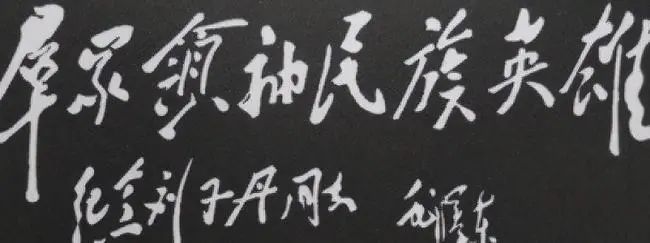 羣众领袖民族英雄
纪念刘子丹同志 毛泽东